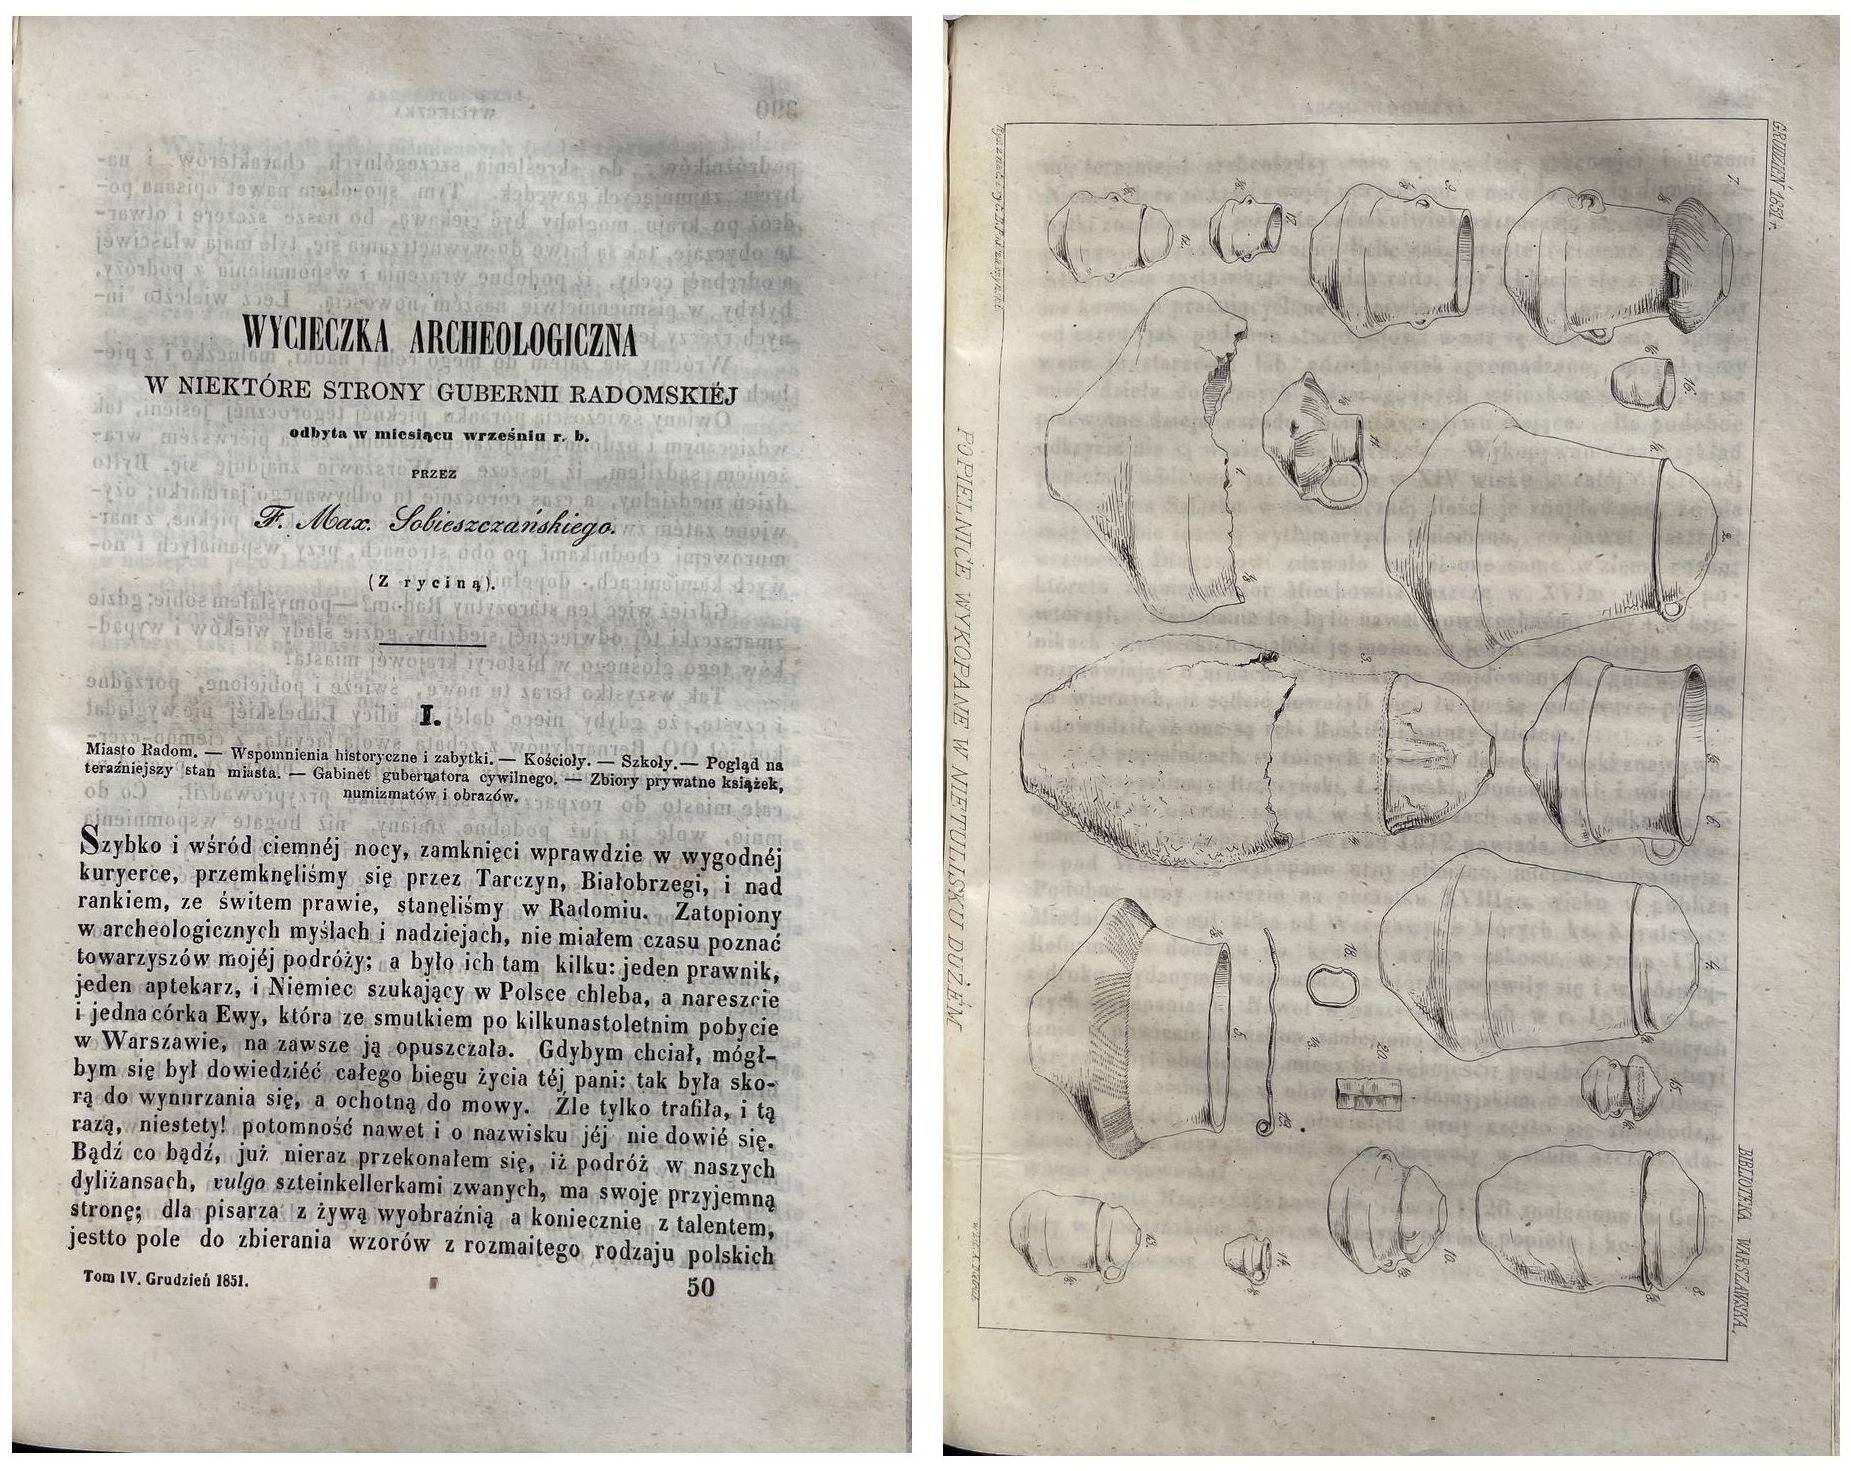 WYCIECZKA ARCHEOLOGICZNA
W NIEKTÓRE STRONY GUBERNII RADOMSKIÉJ
odbyta w miesiącu wrześniu r. b.
PRZEZ
F. Max. Sobieszczańskiego.
(Z ryciną).
I.
Miasto Radom. — Wspomnienia historyczne i zabytki. — Kościoły. — Szkoły. — Pogląd na
teraźniejszy stan miasta. — Gabinet gubernatora cywilnego. — Zbiory prywatne książek,
numizmatów i obrazów.
Szybko i wśród ciemnéj nocy, zamknięci wprawdzie w wygodnéj
kuryerce, przemknęliśmy się przez Tarczyn, Białobrzegi, i nad
rankiem, ze świtem prawie, stanęliśmy w Radomiu. Zatopiony
w archeologicznych myślach i nadziejach, nie miałem czasu poznać
towarzyszów mojéj podróży; a było ich tam kilku: jeden prawnik,
jeden aptekarz, i Niemiec szukający w Polsce chleba, a nareszcie
i jedna córka Ewy, która ze smutkiem po kilkunastoletnim pobycie
w Warszawie, na zawsze ją opuszczała. Gdybym chciał, mógł-
bym się był dowiedziéć całego biegu życia téj pani: tak była sko-
rą do wynurzania się, a ochotną do mowy. Źle tylko trafiła, i tą
razą, niestety! potomność nawet i o nazwisku jéj nie dowié się.
Bądź co bądź, już nieraz przekonałem się, iż podróż w naszych
dyliżansach, vulgo szteinkellerkami zwanych, ma swoję przyjemną
stronę; dla pisarza z żywą wyobraźnią a koniecznie z talentem,
jestto pole do zbierania wzorów z rozmaitego rodzaju polskich
Tom IV. Grudzień 1851.
50
GRUDZIEŃ 1851 r.
BIBLIOTEKA WARSZAWSKA.
7.
9.
17.
12.
16.
11.
1.
2.
3.
6.
4.
5.
18.
19.
20.
15.
13.
14.
10.
8.
POPIELNICE WYKOPANE W NIETULISKU DUŻÉM